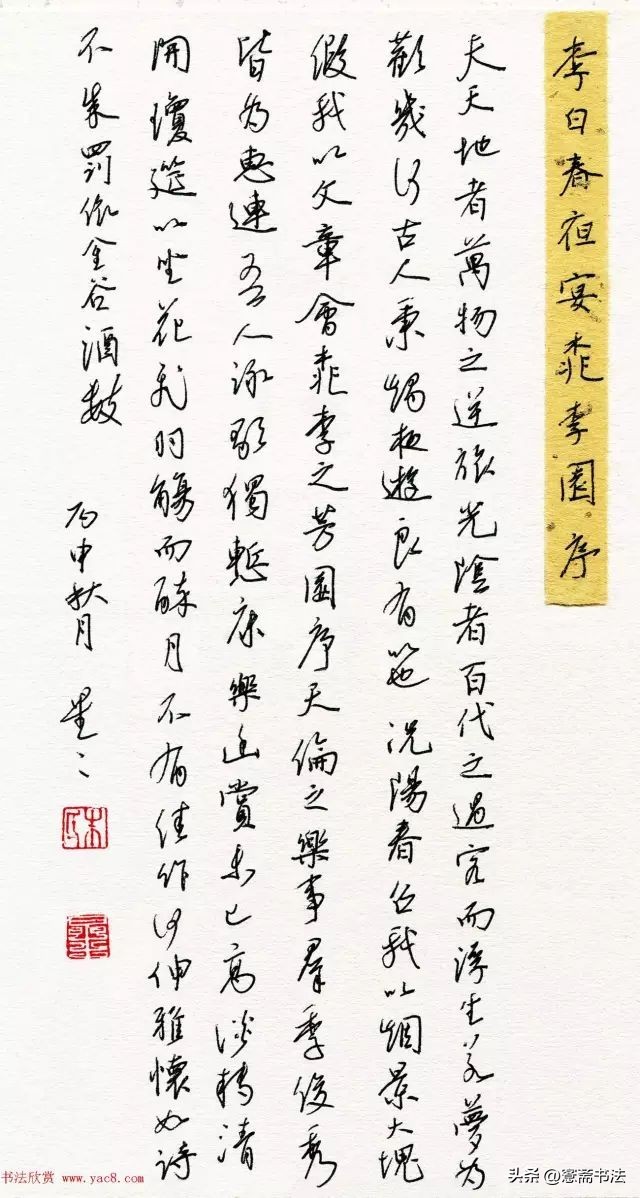 李白春夜宴桃李園序
夫天地者萬物之逆旅光陰者百代之過客而浮生若夢為
歡幾何古人秉燭夜遊良有以也況陽春召我以烟景大塊
假我以文章會桃李之芳園序天倫之樂事羣季俊秀
皆為惠連吾人詠歌獨慙康樂幽賞未已高談轉清
開瓊筵以坐花飛羽觴而醉月不有佳作何伸雅懷如詩
不成罰依金谷酒數
丙申秋月 星〻
书法欣赏 www.yac8.com
头条 @斋书法